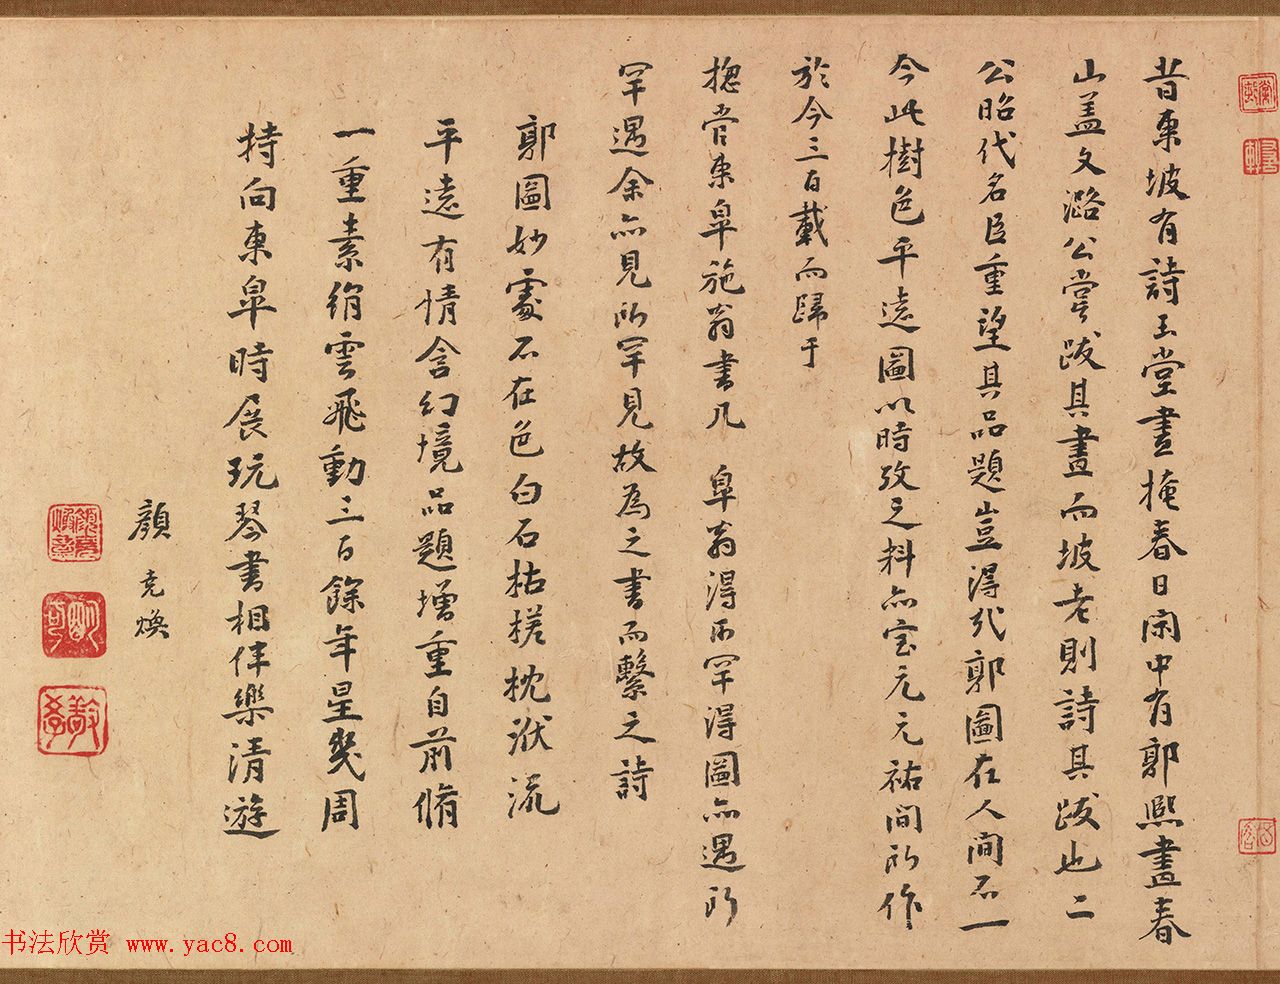 昔東坡有詩玉堂晝掩春日閑中有郭熙畫春
山盖文潞公嘗跋其畫而坡老則詩其跋也二
公昭代名臣重望其品題豈得猶郭圖在人間不一
今此樹色平遠圖以時攷之料亦宝元元祐間所作
於今三百載而歸于
揔管東皐施翁書几 皐翁得所罕得圖亦遇所
罕遇余亦見所罕見故為之書而繫之詩
郭圖妙處不在色白石枯槎枕洑流
平遠有情含幻境品題增重自前脩
一重素絹雲飛動三百餘年星幾周
持向東皐時展玩琴書相伴樂清遊
顏堯煥
书法欣赏 www.yac8.com